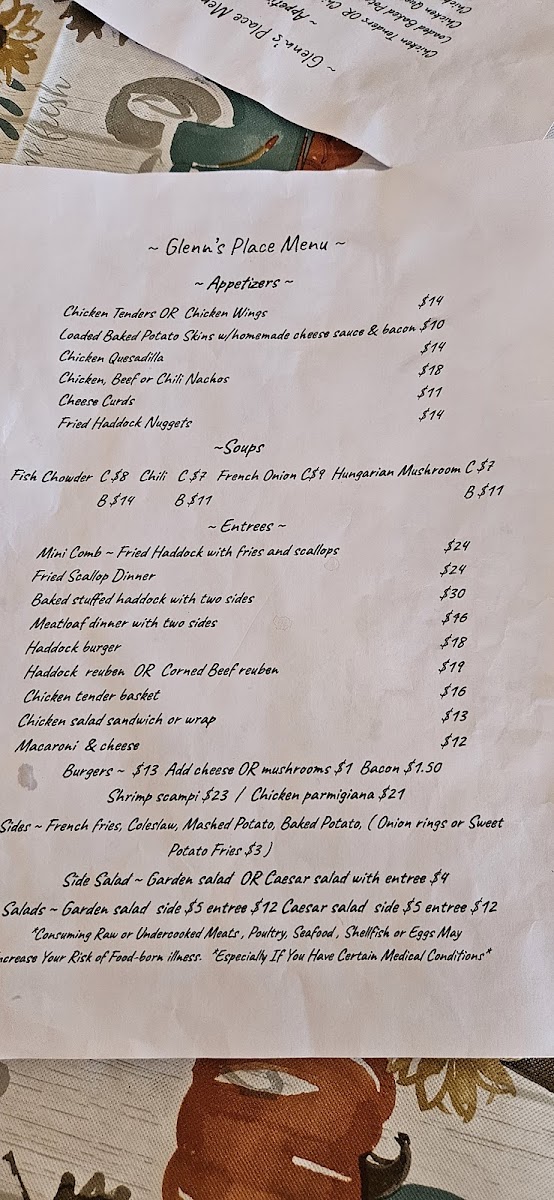 ~ Glenn's Place Men
~ Appeti
Chicken Tenders OR Chi
Loaded Baked Potat
~ Glenn's Place Menu ~
~ Appetizers ~
Chicken Tenders OR Chicken Wings $14
Loaded Baked Potato Skins w/homemade cheese sauce & bacon $10
Chicken Quesadilla $14
Chicken, Beef or Chili Nachos $18
Cheese Curds $11
Fried Haddock Nuggets $14
~Soups
Fish Chowder C $8 Chili C $7 French Onion C$9 Hungarian Mushroom C $7
B $14 B $11 B $11
~ Entrees ~
Mini Comb ~ Fried Haddock with fries and scallops $24
Fried Scallop Dinner $24
Baked stuffed haddock with two sides $30
Meatloaf dinner with two sides $16
Haddock burger $18
Haddock reuben OR Corned Beef reuben $19
Chicken tender basket $16
Chicken salad sandwich or wrap $13
Macaroni & cheese $12
Burgers ~ $13 Add cheese OR mushrooms $1 Bacon $1.50
Shrimp scampi $23 / Chicken parmigiana $21
Sides ~ French fries, Coleslaw, Mashed Potato, Baked Potato, ( Onion rings or Sweet
Potato Fries $3 )
Side Salad ~ Garden salad OR Caesar salad with entree $4
Salads ~ Garden salad side $5 entree $12 Caesar salad side $5 entree $12
"Consuming Raw or Undercooked Meats, Poultry, Seafood, Shellfish or Eggs May
ncrease Your Risk of Food-born illness. "Especially If You Have Certain Medical Conditions"